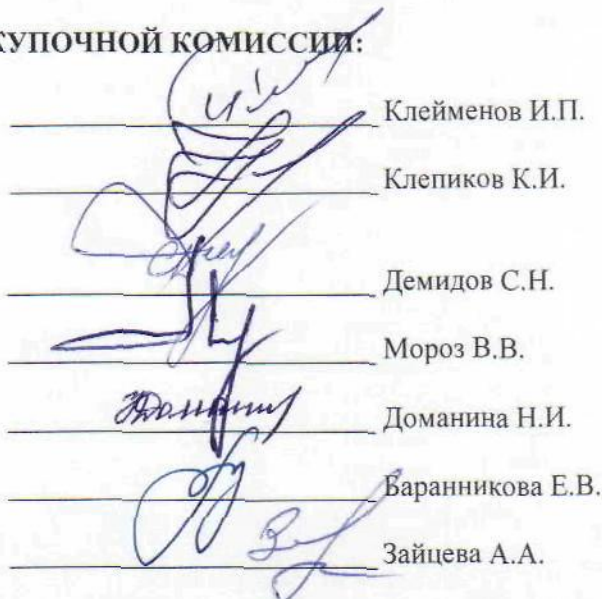 КУПОЧНОЙ КОМИССИИ:
Клейменов И.П.
Клепиков К.И.
Демидов С.Н.
Мороз В.В.
Доманина Н.И.
Баранникова Е.В.
Зайцева А.А.